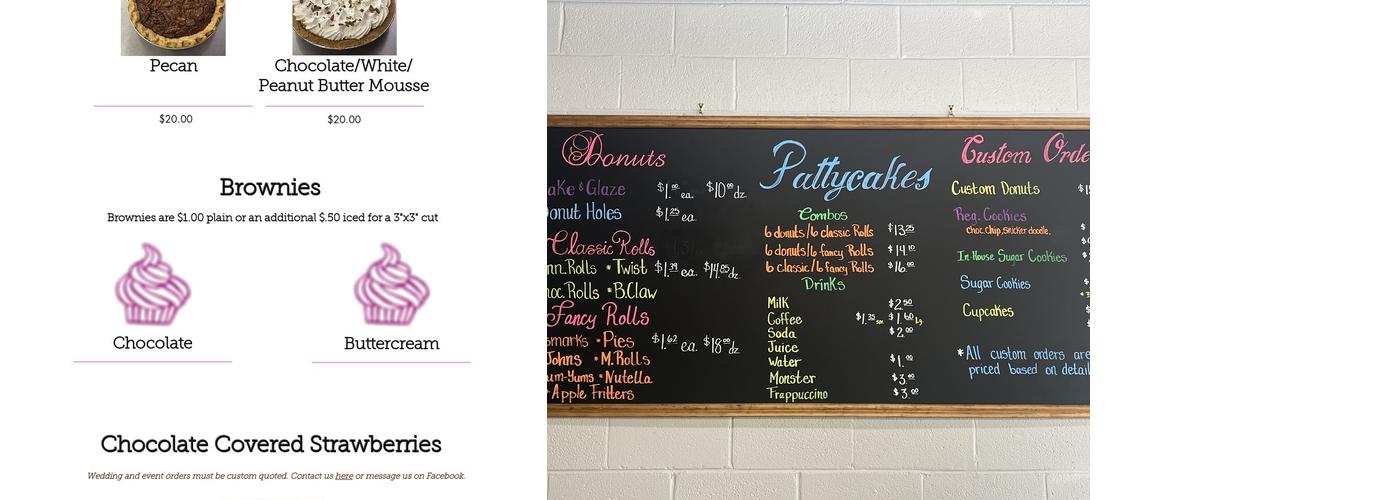 Pecan
Chocolate/White/
Peanut Butter Mousse
$20.00
$20.00
Brownies
Brownies are $1.00 plain or an additional $.50 iced for a 3"x3" cut
Chocolate
Buttercream
Chocolate Covered Strawberries
Wedding and event orders must be custom quoted. Contact us here or message us on Facebook.
Donuts
ake & Glaze $1.00 ea. $10.00 dz.
onut Holes $1.25 ea.
Classic Rolls
nn.Rolls • Twist $1.39 ea. $14.85 dz.
oc.Rolls • B.Claw
Fancy Rolls
smarks • Pies $1.62 ea. $18.00 dz.
Johns • M.Rolls
um-Yums • Nutella
Apple Fritters
Pattycakes
Combos
6 donuts/6 classic Rolls $13.25
6 donuts/6 fancy Rolls $14.10
6 classic/6 fancy Rolls $16.00
Drinks
Milk $2.50
Coffee $1.35 sm $1.60 lg
Soda $2.00
Juice
Water $1.00
Monster $3.40
Frappuccino $3.00
Custom Orde
Custom Donuts
Reg. Cookies
choc.chip, snicker doodle,
In-House Sugar Cookies
Sugar Cookies
Cupcakes
*All custom orders are
priced based on detail